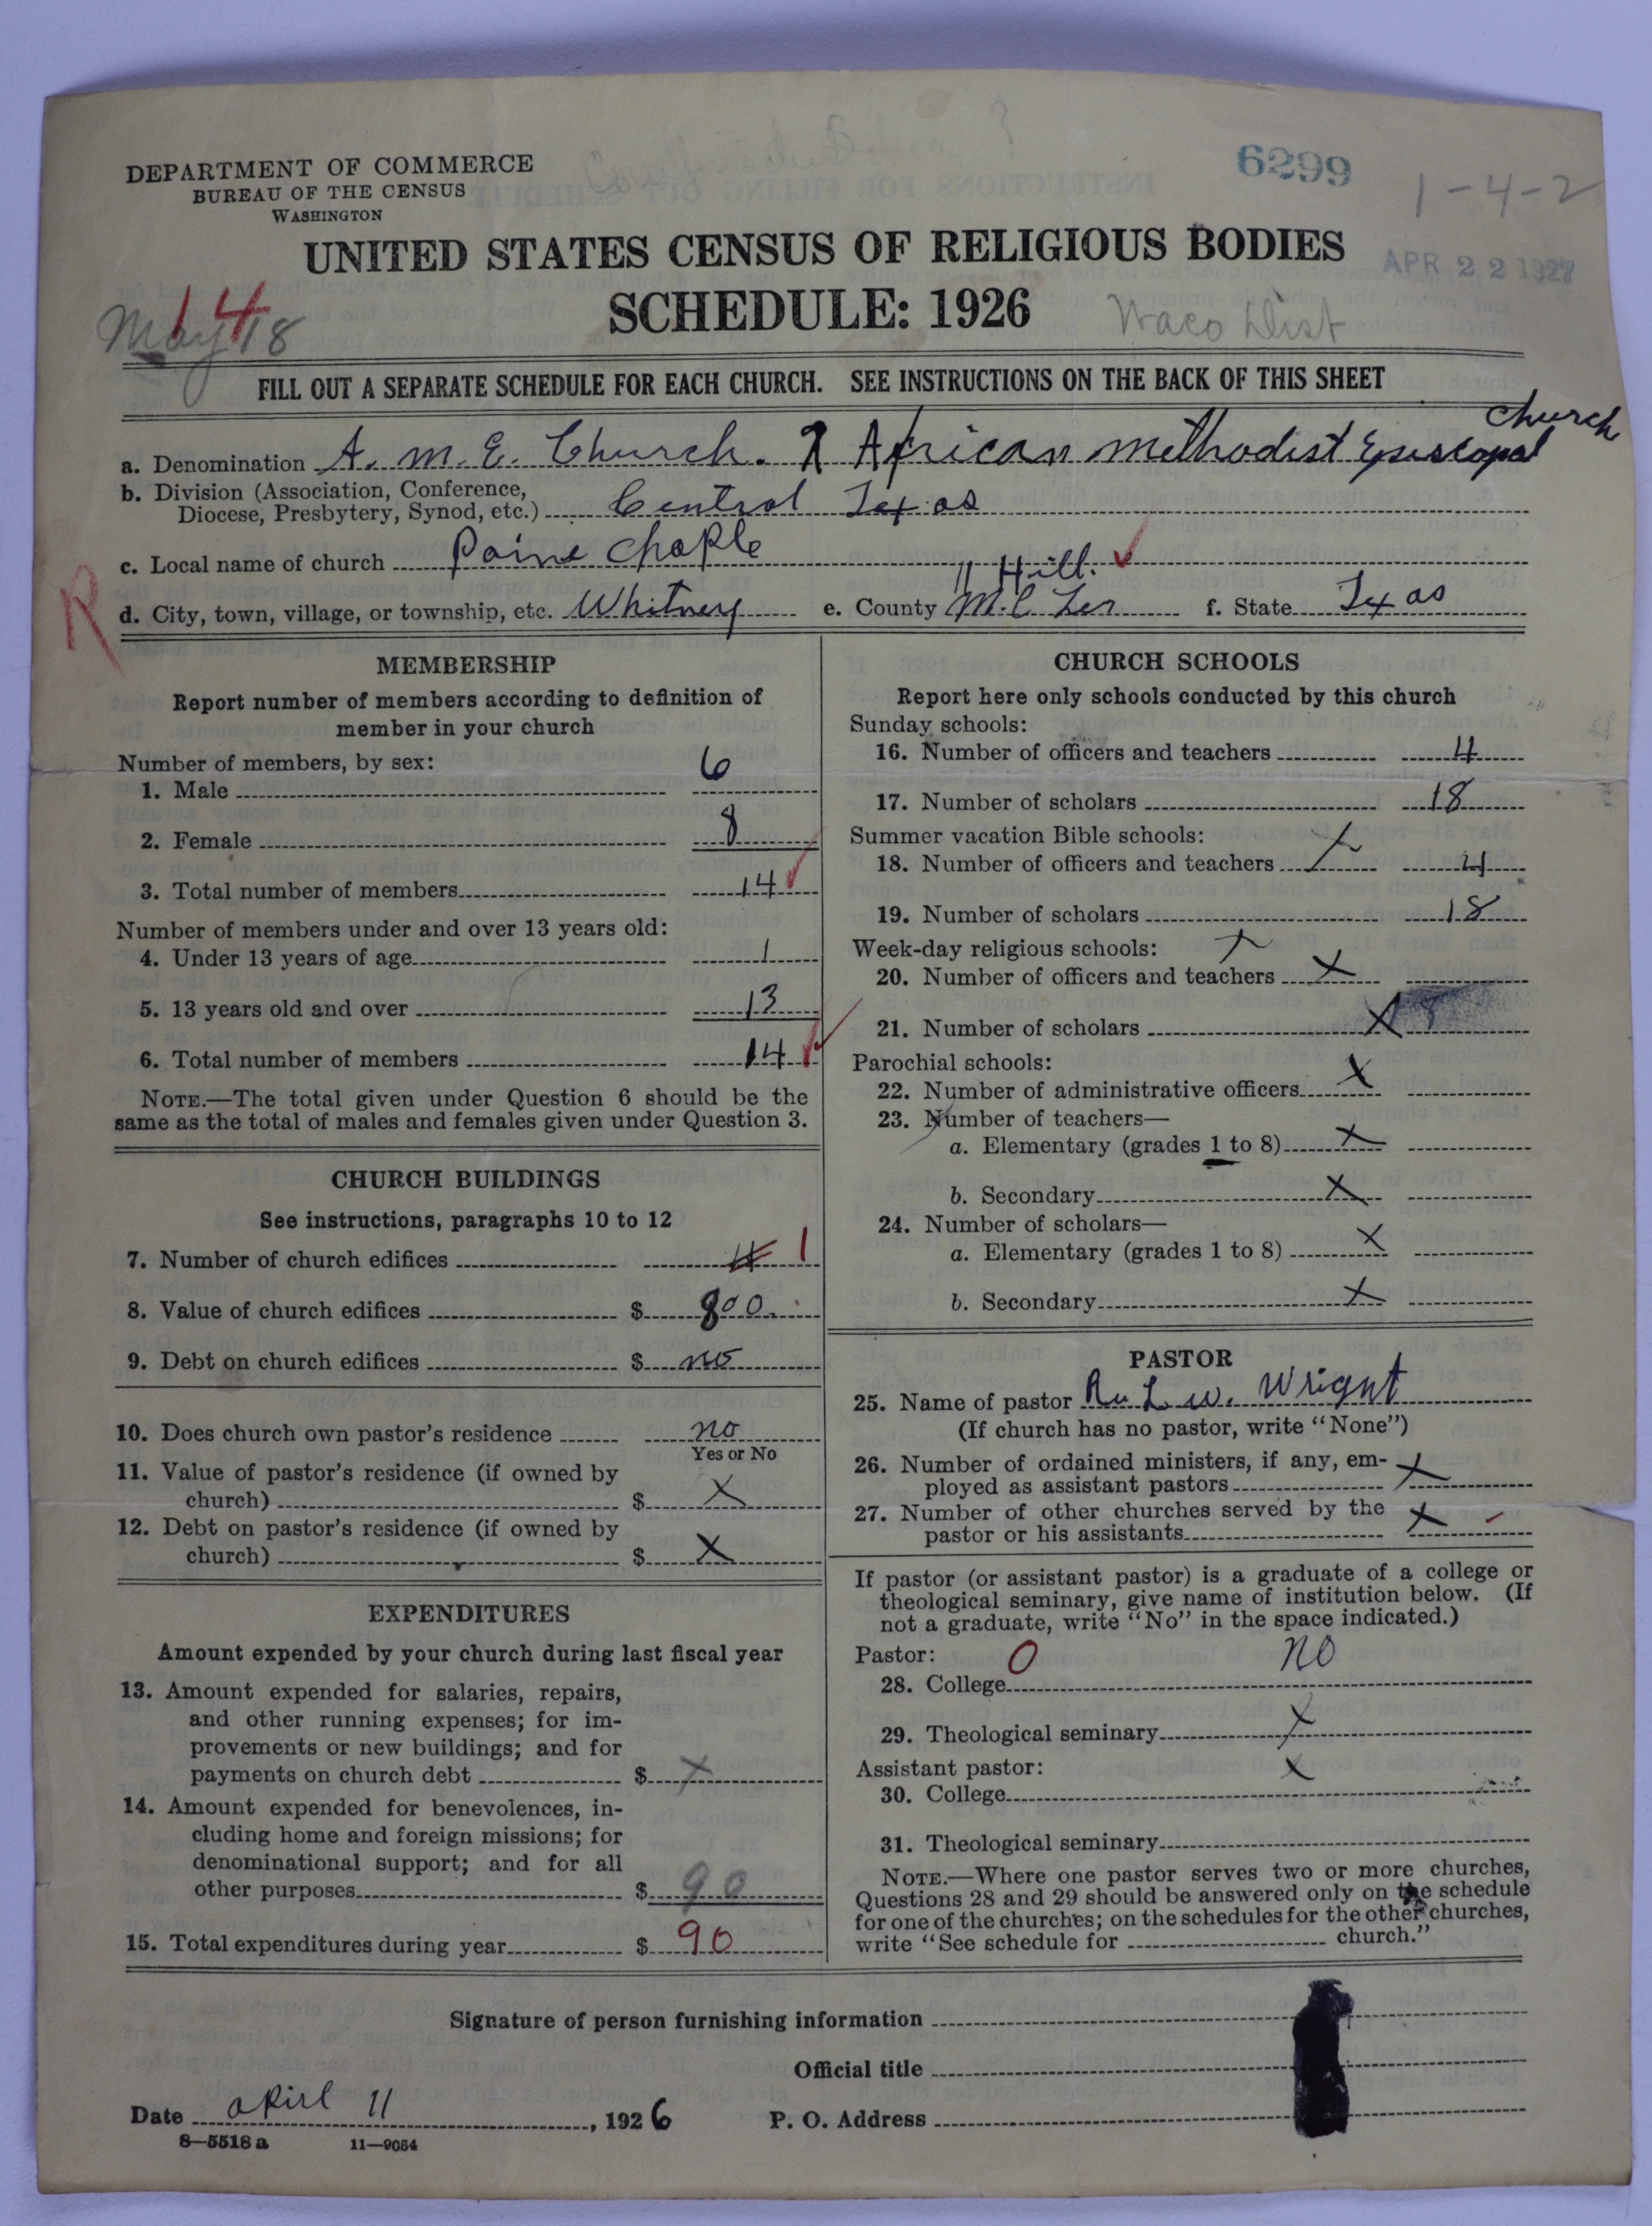 DEPARTMENT OF COMMERCE
BUREAU OF THE CENSUS
WASHINGTON
6299
1-4-2
UNITED STATES CENSUS OF RELIGIOUS BODIES
APR 22 1927
SCHEDULE: 1926
Waco Dist
14
May 18
FILL OUT A SEPARATE SCHEDULE FOR EACH CHURCH. SEE INSTRUCTIONS ON THE BACK OF THIS SHEET
church
a. Denomination A. M. E. Church. African Methodist Episcopal
b. Division (Association, Conference,
Diocese, Presbytery, Synod, etc.) Central Texas
c. Local name of church Paine Chaple
Hill.
R
d. City, town, village, or township, etc. Whitney e. County M.C Len f. State Texas
MEMBERSHIP
Report number of members according to definition of
member in your church
Number of members, by sex:
1. Male 6
2. Female 8
3. Total number of members 14
Number of members under and over 13 years old:
4. Under 13 years of age 1
5. 13 years old and over 13
6. Total number of members 14
NOTE.—The total given under Question 6 should be the
same as the total of males and females given under Question 3.
CHURCH BUILDINGS
See instructions, paragraphs 10 to 12
7. Number of church edifices 4 1
8. Value of church edifices $ 800.
9. Debt on church edifices $ no
10. Does church own pastor's residence no
Yes or No
11. Value of pastor's residence (if owned by
church) $ X
12. Debt on pastor's residence (if owned by
church) $ X
EXPENDITURES
Amount expended by your church during last fiscal year
13. Amount expended for salaries, repairs,
and other running expenses; for im-
provements or new buildings; and for
payments on church debt $ X
14. Amount expended for benevolences, in-
cluding home and foreign missions; for
denominational support; and for all
other purposes $ 90
15. Total expenditures during year $ 90
CHURCH SCHOOLS
Report here only schools conducted by this church
Sunday schools:
16. Number of officers and teachers 4
17. Number of scholars 18
Summer vacation Bible schools:
18. Number of officers and teachers X 4
19. Number of scholars 18
Week-day religious schools: X
20. Number of officers and teachers X
21. Number of scholars X
Parochial schools:
22. Number of administrative officers X
23. Number of teachers—
a. Elementary (grades 1 to 8) X
b. Secondary X
24. Number of scholars—
a. Elementary (grades 1 to 8) X
b. Secondary X
PASTOR
25. Name of pastor L. W. Wright
(If church has no pastor, write "None")
26. Number of ordained ministers, if any, em-
ployed as assistant pastors X
27. Number of other churches served by the
pastor or his assistants X
If pastor (or assistant pastor) is a graduate of a college or
theological seminary, give name of institution below. (If
not a graduate, write "No" in the space indicated.)
Pastor: 0
28. College no
29. Theological seminary X
Assistant pastor:
30. College X
31. Theological seminary
NOTE.—Where one pastor serves two or more churches,
Questions 28 and 29 should be answered only on the schedule
for one of the churches; on the schedules for the other churches,
write "See schedule for church."
Signature of person furnishing information
Official title
Date april 11, 1926 P. O. Address
8—5518 a 11—9054